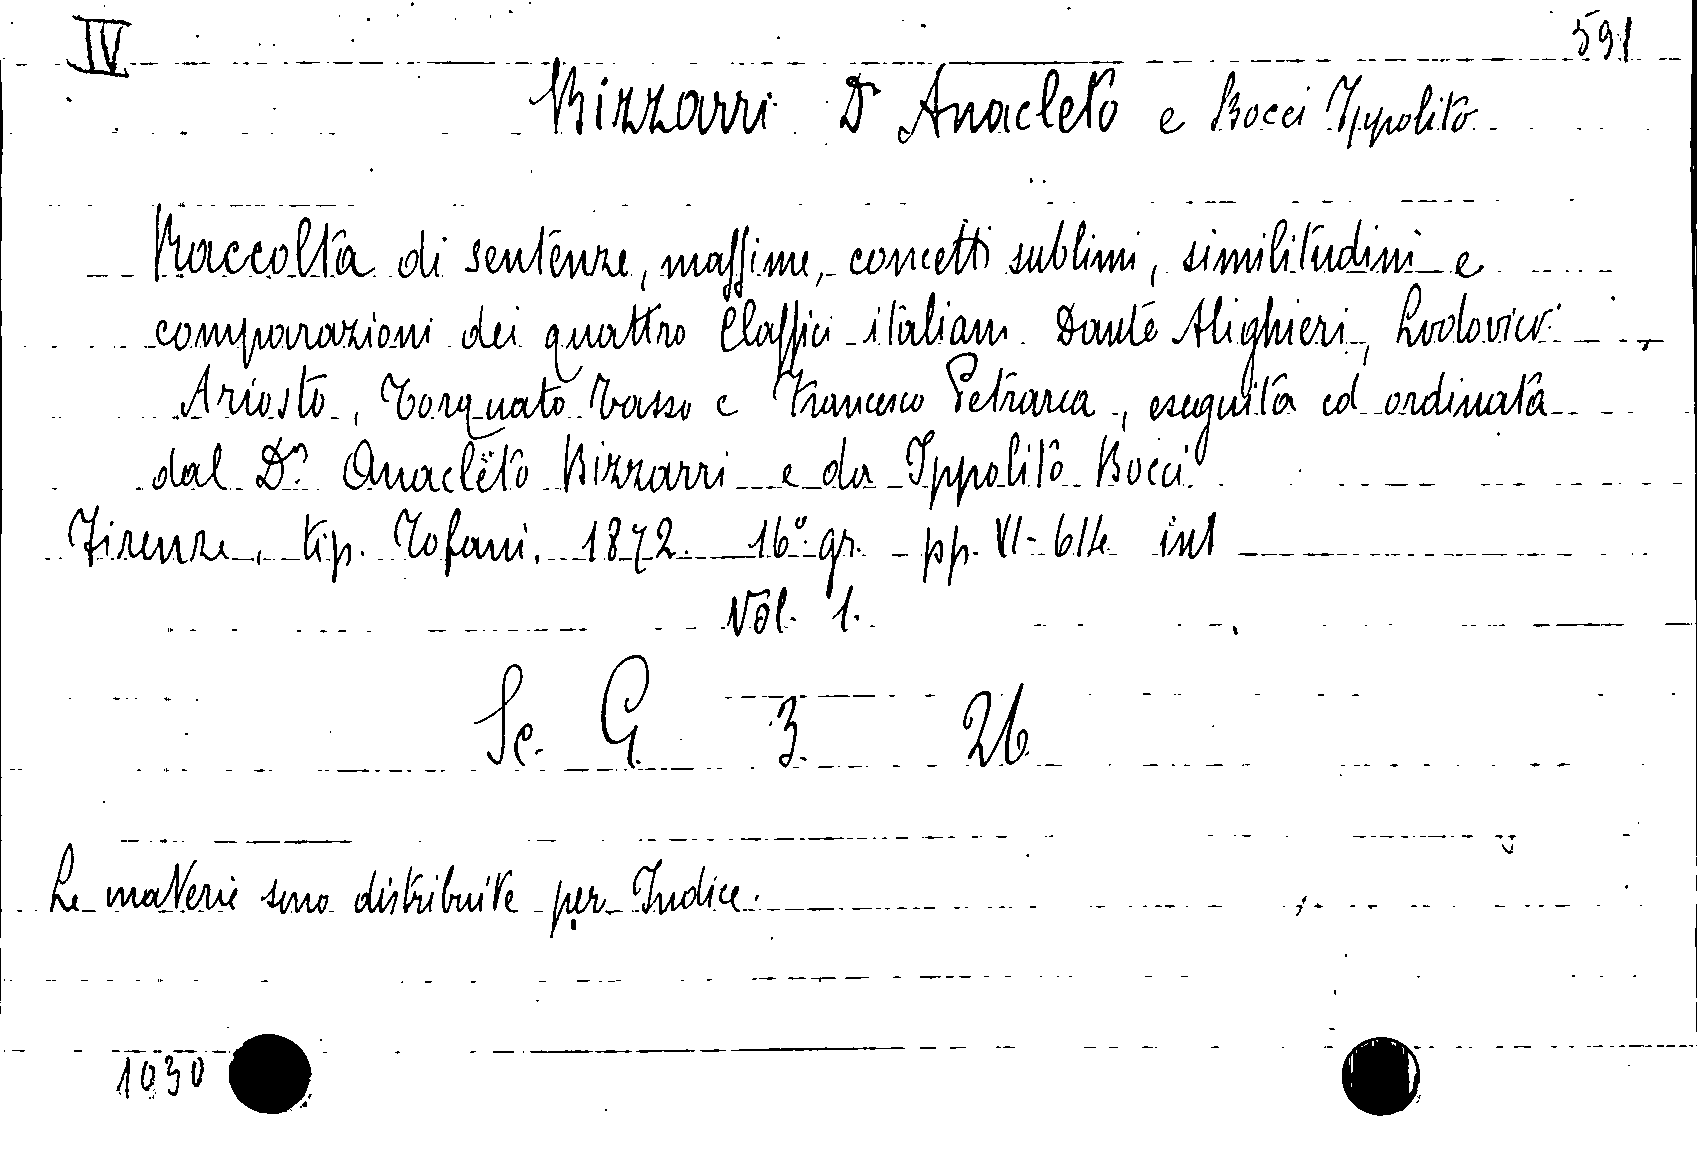 IV 591
Bizzarri Dr Anacleto e Bocci Ippolito
Raccolta di sentenze, massime, concetti sublimi, similitudini e
comparazioni dei quattro Classici italiani Dante Alighieri, Lodovico
Ariosto, Torquato Tasso e Francesco Petrarca, eseguita ed ordinata
dal Dr. Anacleto Bizzarri e da Ippolito Bocci
Firenze, tip. Tofani. 1872. 16° gr. pp. VI-614 int
Vol. 1.
Sc. G. 3. 26
Le materie sono distribuite per Indice.
1030